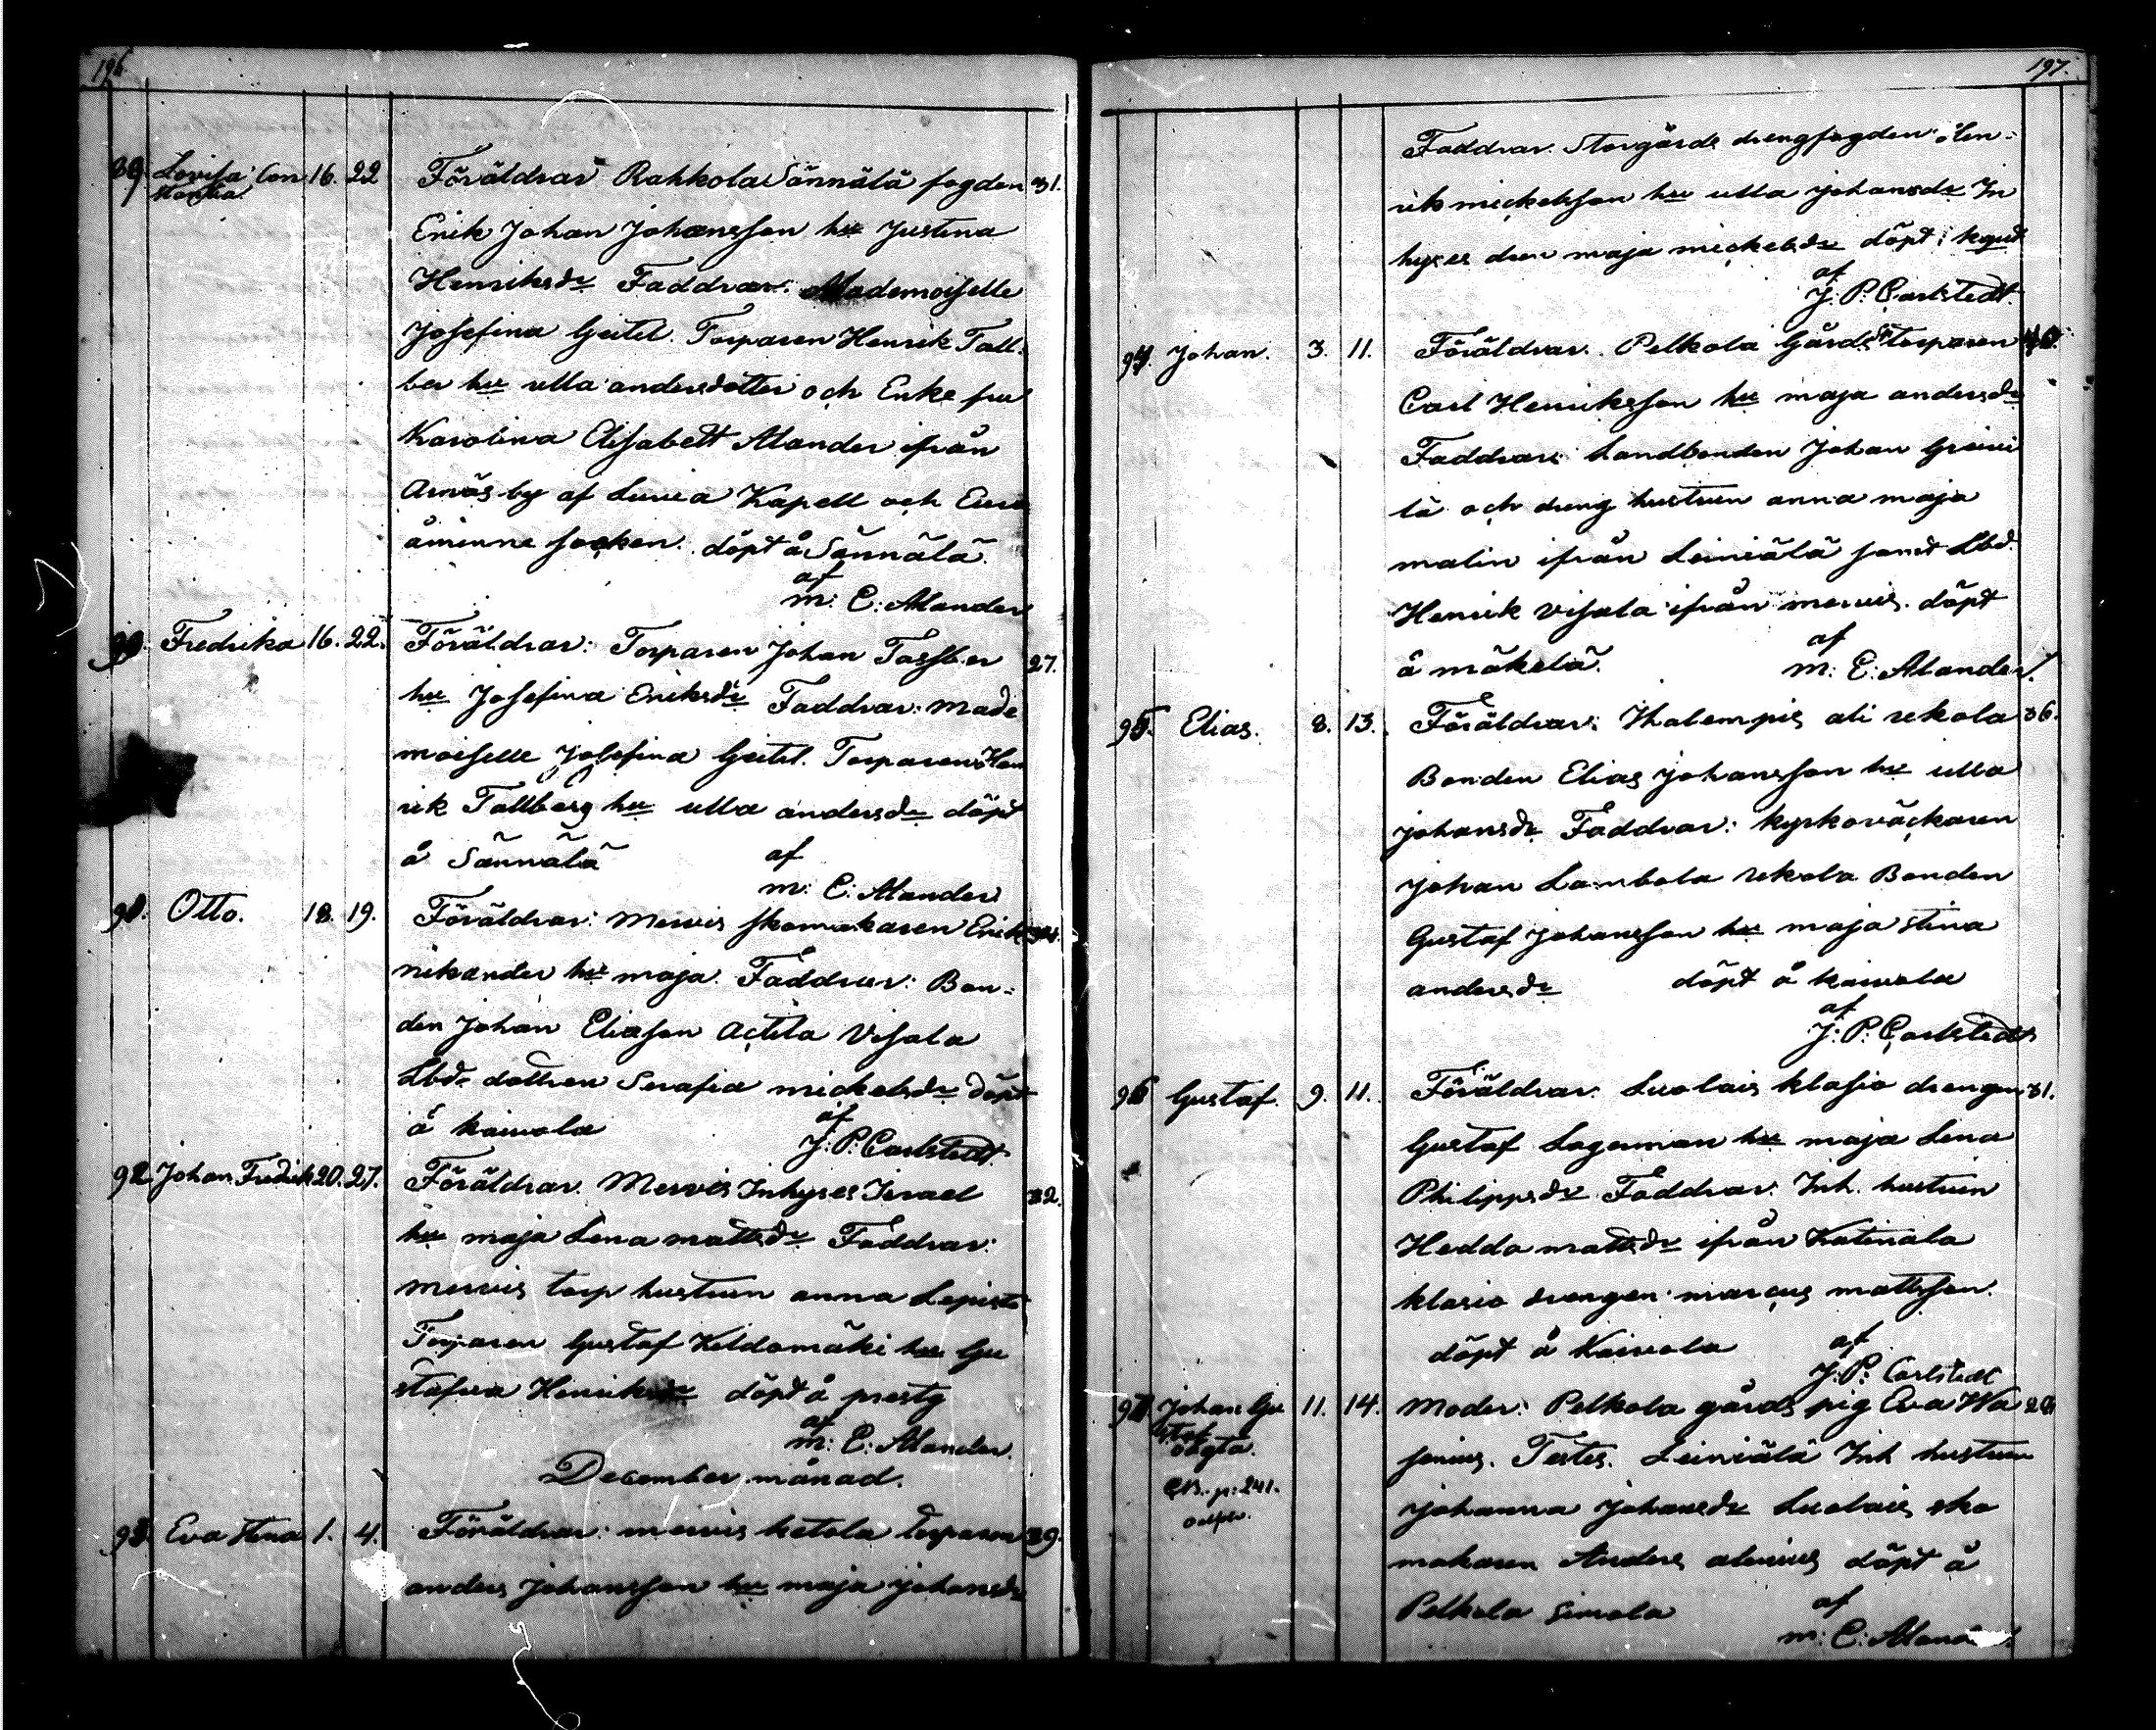 196.
89. Lovisa Con 16. 22 Föräldrar Rahkola Sännälä fogden 31.
stantia.
Erik Johan Johansson hu Justina
Henriksdr Faddrar: Mademoiselle
Josefina Geitel. Torparen Henrik Tall-
ber hu ulla andersdotter och Enke fru
Karolina Elisabett Alander ifrån
Arnäs by af Luvia Kapell och Eura
åminne socken. döpt å Sännälä
af
m: E: Alander
90. Fredrika 16. 22. Föräldrar: Torparen Johan Tassber 27.
hu Josefina Eriksdr Faddrar: made
moiselle Josefina Geitel. Torparen Hen
rik Tallberg hu ulla andersdr döpt
å Sännälä af
m: E: Alander
91. Otto. 18. 19. Föräldrar: Mervis skomakaren Erik
nikander hu maja. Faddrar: Bon-
den Johan Eliasson Actila Visala
Lbdr dottren Serafia mickelsdr döpt
å kaivola af
J: P: Carlstedt.
92. Johan Fredrik 20. 27. Föräldrar. Mervis Inhyses Israel 32.
hu maja Lena mattsdr Faddrar:
mervis torp hustrun anna Lepistö
Torparen Gustaf Keldomäki hu Gu
stafva Henriksdr döpt å prestg
af
m: E: Alander.
December månad.
93. Eva Stina 1. 4. Föräldrar: mervis ketola torparen 39.
anders Johansson hu maja johansdr
197.
Faddrar. Storgårds drengfogden Hen-
rik mickelsson hu ulla johansdr In
hyses dren maja mickelsdr döpt i
af
J: P: Carlstedt
94. Johan. 3. 11. Föräldrar. Pelkola Gårds torparen
Carl Henriksson hu maja andersdr
Faddrar: Landbonden Johan
lä och dreng hustrun anna maja
malin ifrån Leiniälä samt Lbd.
Henrik Visala ifrån mervis. döpt
å mäkelä. af
m: E: Alander.
95. Elias. 8. 13. Föräldrar: Ihalempis ali rekola 36.
Bonden Elias johansson hu ulla
johansdr Faddrar: kyrkoväckaren
johan Lambola rekola Bonden
Gustaf Johansson hu maja stina
andersdr döpt å kaivola
af
J: P: Carlstedt
96 Gustaf. 9. 11. Föräldrar. Luolais klasio drengen 31.
Gustaf Lagerman hu maja Lena
Philippsdr Faddrar. Inh. hustrun
Hedda mattsdr ifrån Katinala
klasio drengen marcus mattsson.
döpt å Kaivola af
J: P: Carlstedt
97 Johan Gu 11. 14. Moder: Pelkola gårds pig Eva Wa
staf
oägta.
p: 241.
senius. Testes. Leiniälä Inh hustrun
johanna johansdr Luolais sko
makaren Anders alenius döpt å
Pelkola Simola af
m: E: Aland